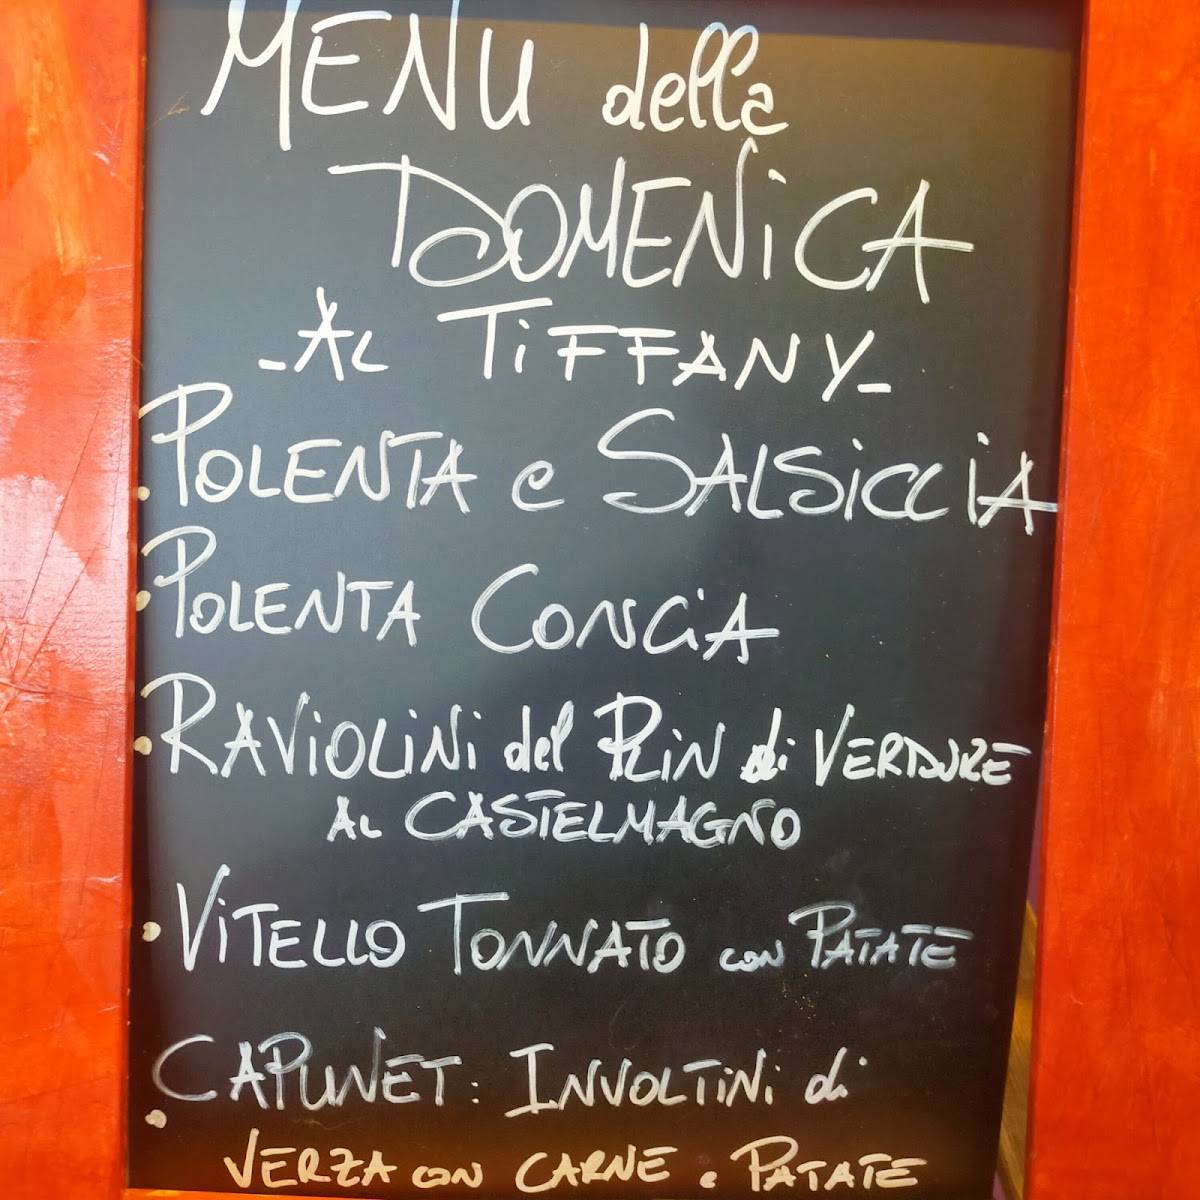 MENU della
DOMENICA
- AL TIFFANY -
. POLENTA e SALSICCIA
. POLENTA CONCIA
. RAVIOLINI del PLIN di VERDURE
AL CASTELMAGNO
. VITELLO TONNATO con PATATE
. CAPUNET: INVOLTINI di
VERZA con CARNE e PATATE